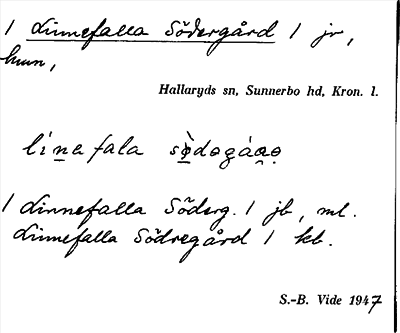 / Linnefalla Södergård / jr,
hmn,
Hallaryds sn, Sunnerbo hd, Kron. l.
lína fala
/ Linnefalla Söderg. / jb, ml.
Linnefalla Södregård / kb.
S.-B. Vide 1947